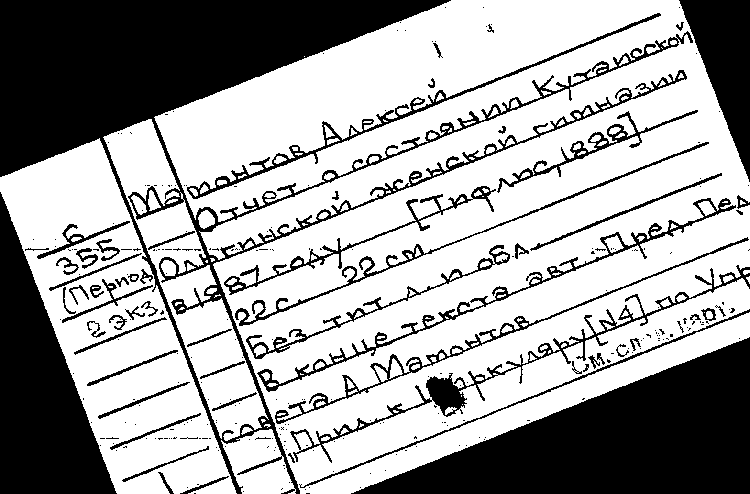 Мамонтов, Алексей
Отчет о состоянии Кутаисской
Ольгинской женской гимназии
в 1887 году. [Тифлис, 1888].
22 с. 22 см.
Без тит. л. и обл.
В конце текста авт.: Пред. Пед.
совета А. Мамонтов
"Прил. к Циркуляру [N4] по Упр
См. след. карт.
6
355
(Период)
2 экз.